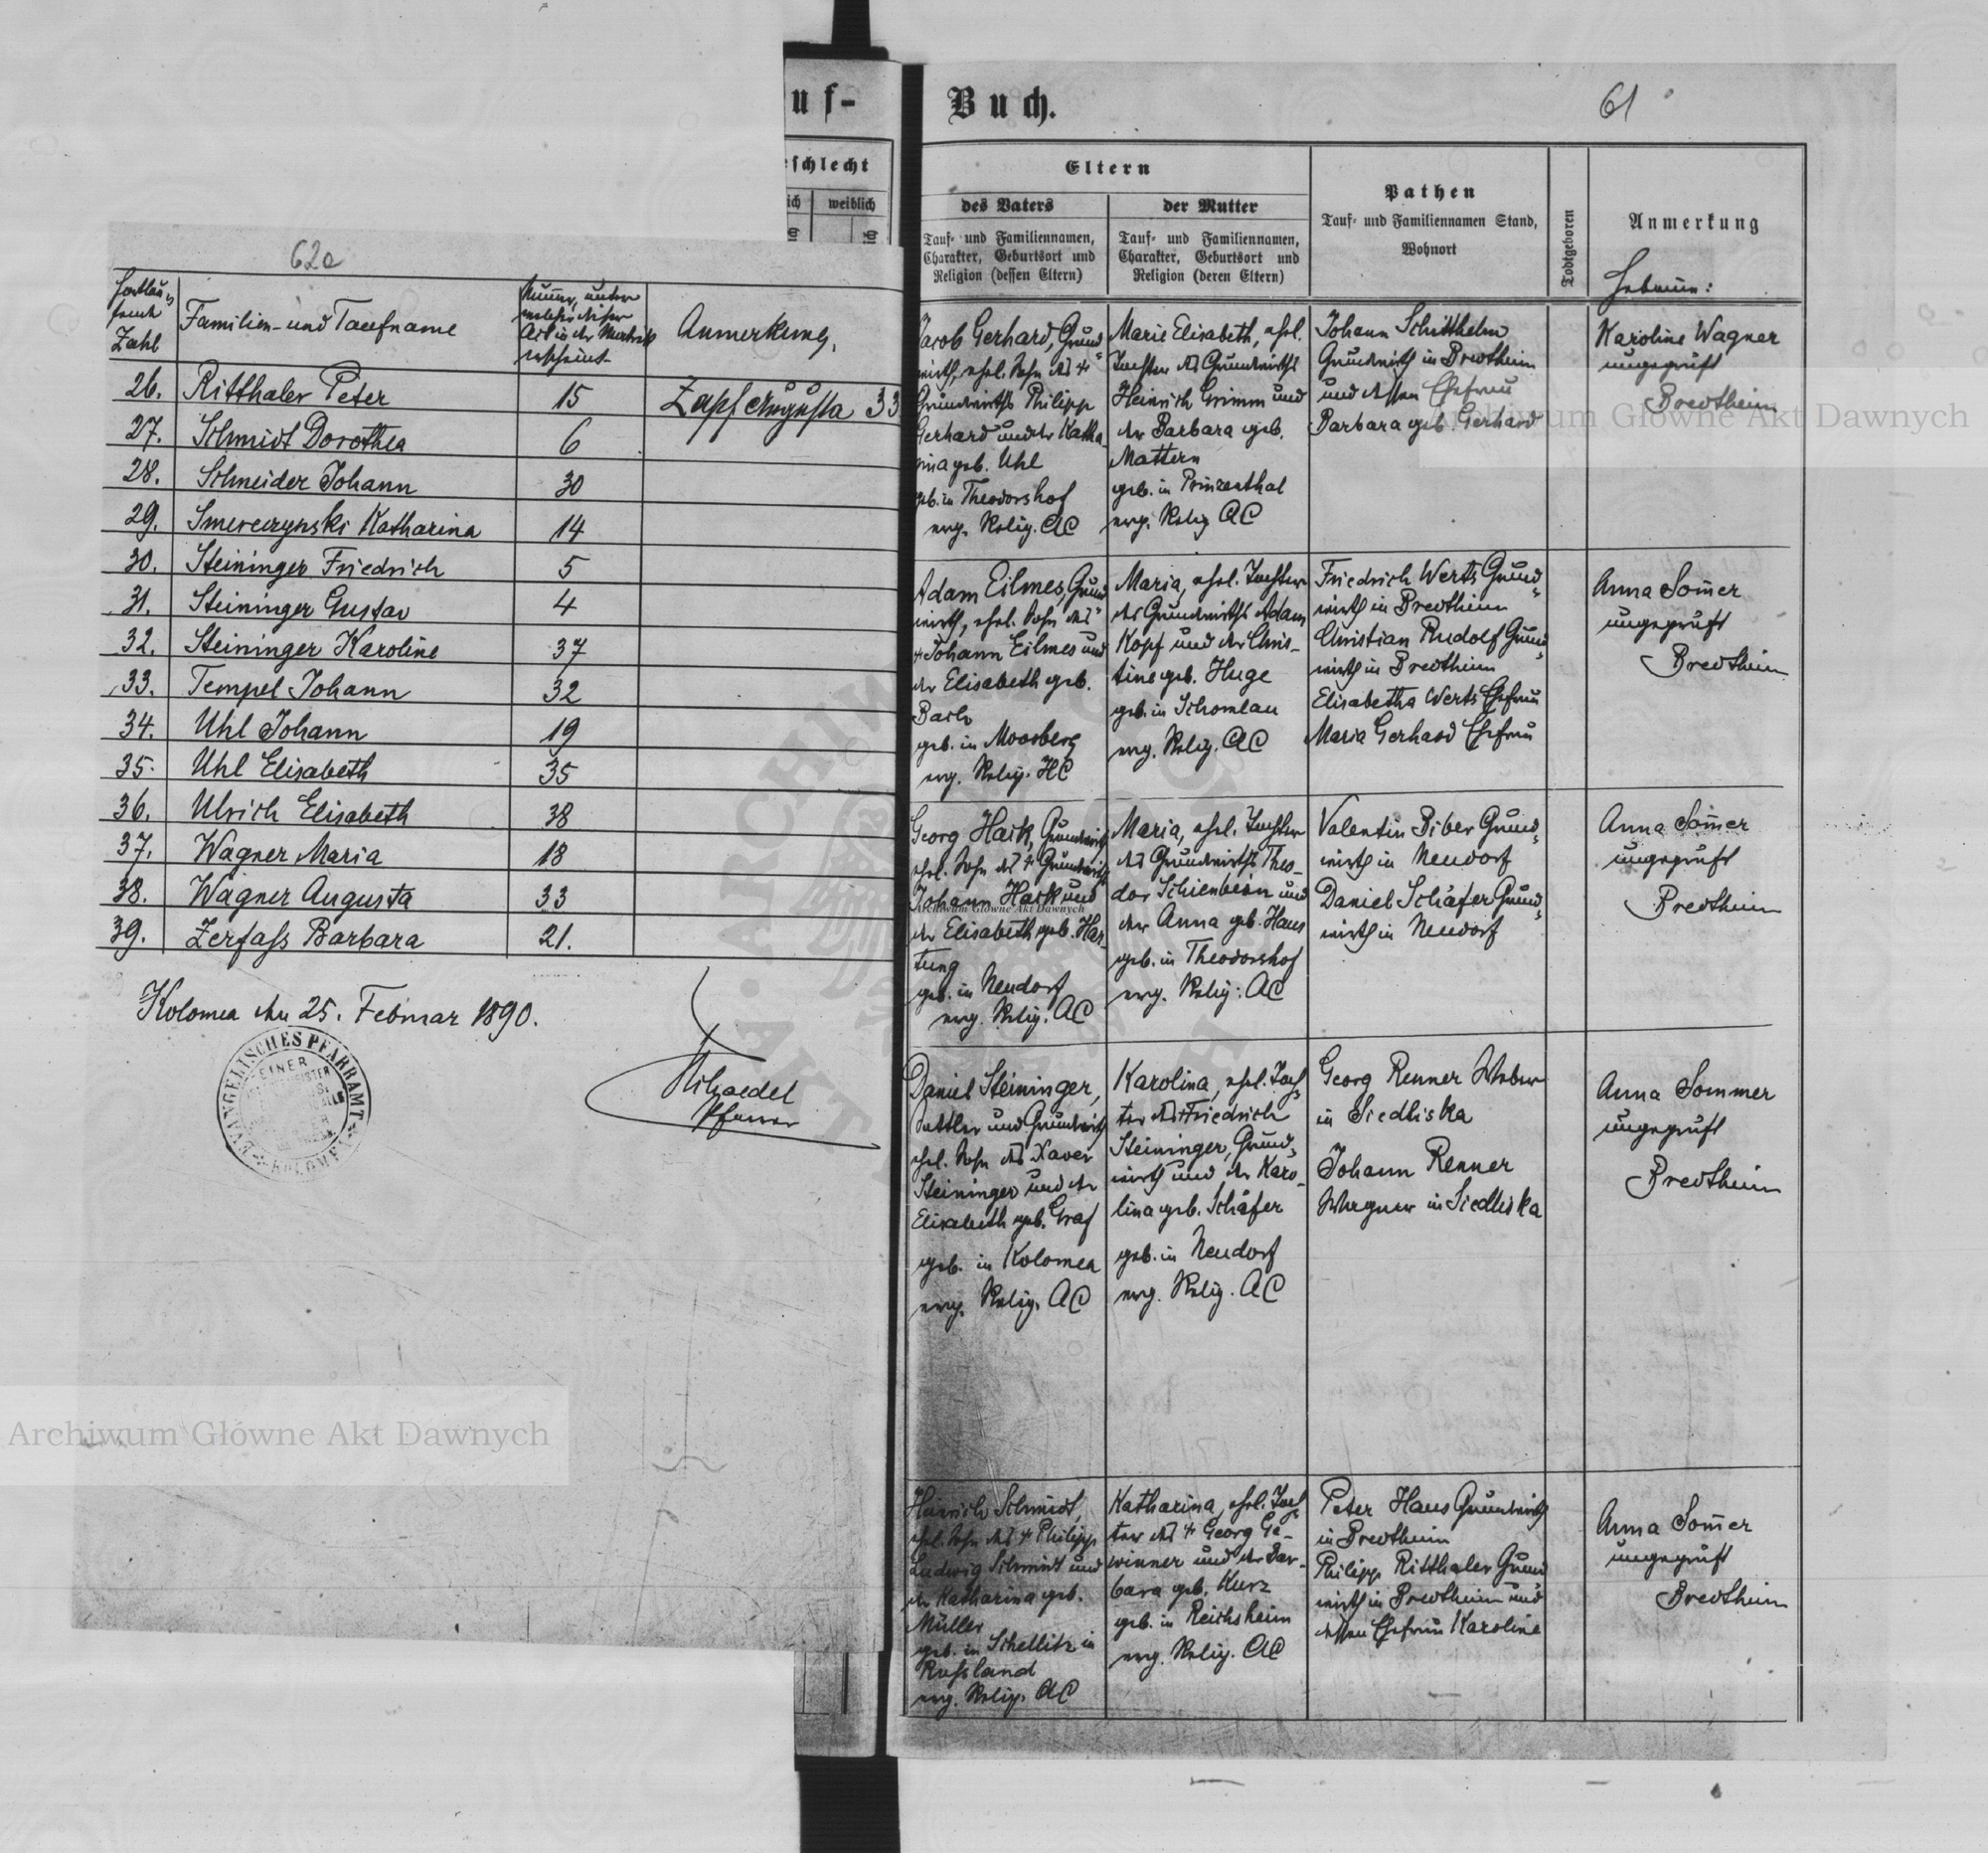 uf-
eschlecht
ich weiblich
62a
Fortlau-
fende
Zahl
Familien- und Taufname
Numer, unter
welcher dieser
Act in der Matrik
erscheint
Anmerkung.
26. Ritthaler Peter 15 Zapf Augusta 33
27. Schmidt Dorothea 6
28. Schneider Johann 30
29. Smereczynski Katharina 14
30. Steininger Friedrich 5
31. Steininger Gustav 4
32. Steininger Karoline 37
33. Tempel Johann 32
34. Uhl Johann 19
35. Uhl Elisabeth 35
36. Ulrich Elisabeth 38
37. Wagner Maria 18
38. Wagner Augusta 33
39. Zerfass Barbara 21.
Kolomea den 25. Februar 1890.
EVANGELISCHES PFARRAMT
KOLOMEA
Pfarrer
Buch.
61
Eltern
des Vaters
Tauf- und Familiennamen,
Charakter, Geburtsort und
Religion (dessen Eltern)
der Mutter
Tauf- und Familiennamen,
Charakter, Geburtsort und
Religion (deren Eltern)
Pathen
Tauf- und Familiennamen Stand,
Wohnort
Todtgeboren
Anmerkung
Hebamme:
Jacob Gerhard, Grund-
wirth, ehel. Sohn des +
Grundwirths Philipp
Gerhard und der Katha-
rina geb. Uhl
geb. in Theodorshof
evg. Relig. AC
Marie Elisabeth, ehel.
Tochter des Grundwirths
Heinrich Grimm und
der Barbara geb.
Mattern
geb. in Prinzenthal
evg. Relig AC
Johann Schitthelm
Grundwirth in Bredtheim
und dessen Ehefrau
Barbara geb. Gerhard
Karoline Wagner
ungeprüft
Bredtheim
Adam Eilmes, Grund-
wirth, ehel. Sohn des
+ Johann Eilmes und
der Elisabeth geb.
Bach
geb. in Moosberg
evg. Relig. HC
Maria, ehel. Tochter
des Grundwirths Adam
Kopf und der Chris-
tine geb. Huge
geb. in Schomlau
evg. Relig. AC
Friedrich Werts Grund-
wirth in Bredtheim
Christian Rudolf Grund-
wirth in Bredtheim
Elisabetha Werts Ehefrau
Maria Gerhard Ehefrau
Anna Som̄er
ungeprüft
Bredtheim
Georg Hack, Grundwirth
ehel. Sohn des + Grundwirths
Johann Hack und
der Elisabeth geb. Har-
tung
geb. in Neudorf
evg. Relig. AC
Maria, ehel. Tochter
des Grundwirths Theo-
dor Schienbein und
der Anna geb. Haus
geb. in Theodorshof
evg. Relig: AC
Valentin Biber Grund-
wirth in Neudorf
Daniel Schäfer Grund-
wirth in Neudorf
Anna Som̄er
ungeprüft
Bredtheim
Daniel Steininger,
Sattler und Grundwirth
ehel. Sohn des Xaver
Steininger und der
Elisabeth geb. Graf
geb. in Kolomea
evg. Relig. AC
Karolina, ehel. Toch-
ter des Friedrich
Steininger, Grund-
wirth und der Karo-
lina geb. Schäfer
geb. in Neudorf
evg. Relig. AC
Georg Renner Weber
in Siedliska
Johann Renner
Wagner in Siedliska
Anna Sommer
ungeprüft
Bredtheim
Heinrich Schmidt,
ehel. Sohn des + Philipp
Ludwig Schmidt und
der Katharina geb.
Müller
geb. in Schellitz in
Russland
evg. Relig. AC
Katharina, ehel. Toch-
ter des + Georg Ge-
winner und der Bar-
bara geb. Kurz
geb. in Reichsheim
evg. Relig. AC
Peter Haus Grundwirth
in Bredtheim
Philipp Ritthaler Grund-
wirth in Bredtheim und
dessen Ehefrau Karoline
Anna Som̄er
ungeprüft
Bredtheim
Archiwum Główne Akt Dawnych
Archiwum Główne Akt Dawnych
Archiwum Główne Akt Dawnych